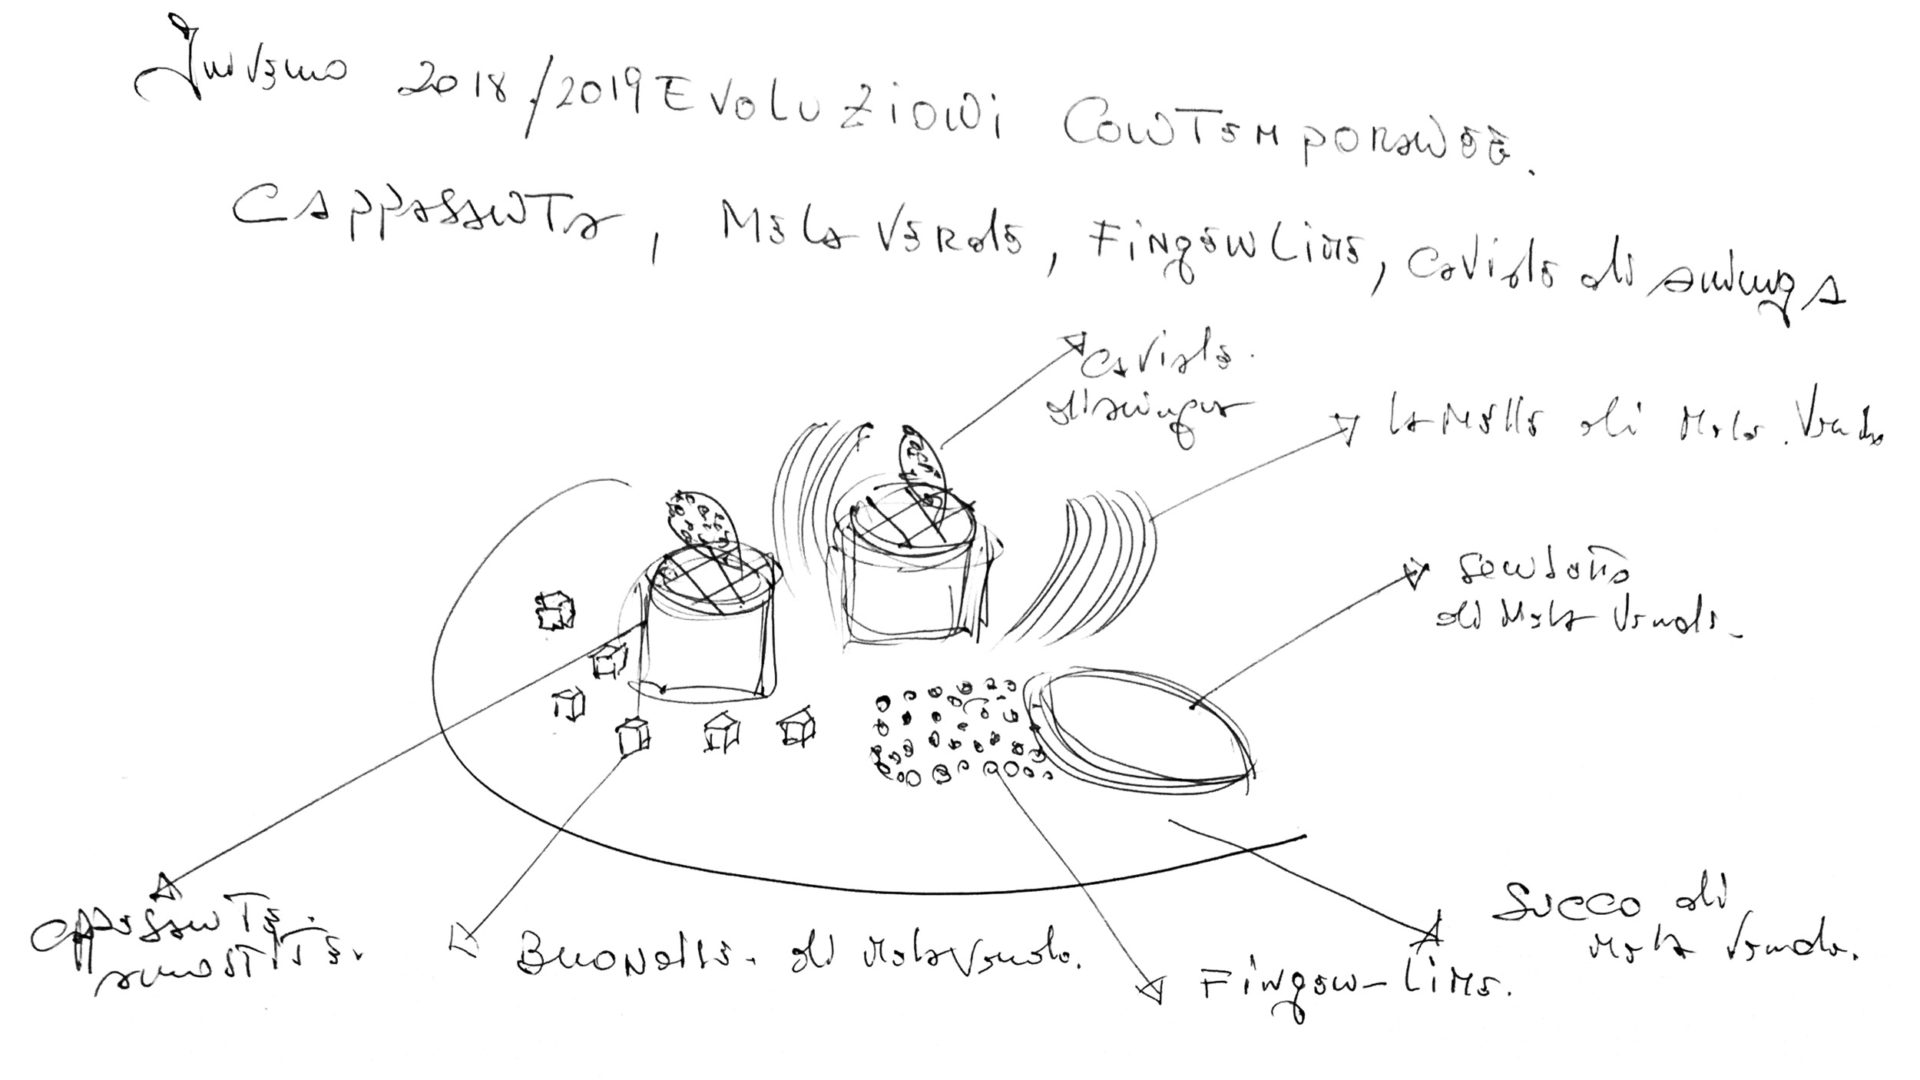 Inverno 2018/2019 Evoluzioni Contemporanee.
Cappasanta, Mela Verde, Finger Lime, Caviale di aringa
Caviale.
di aringa
Lamelle di Mela Verde
Sorbetto
di Mela Verde.
Succo di
Mela Verde.
Cappesante
arrostite.
Brunoise di Mela Verde.
Finger-Lime.